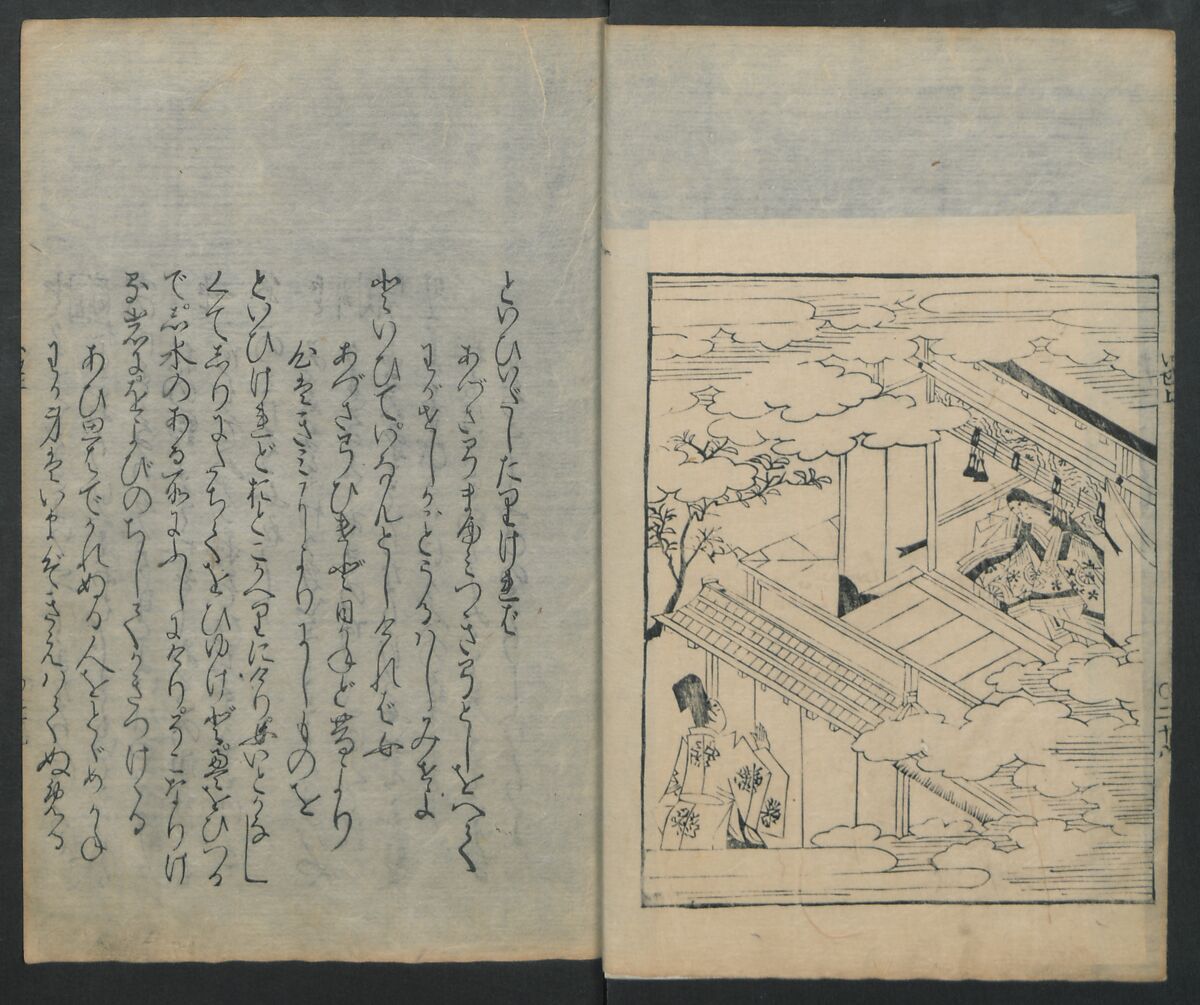 いせ上
といひいだしたりければ
あづさ弓ま弓つき弓としをへて
わがせしがごとうるはしみせよ
といひていなんとしければ女
あづさ弓ひけどひかねど昔より
心はきみによりにしものを
といひけれどおとこかへりにけり女いとかなし
くてしりにたちてをひゆけどえをひつか
でし水のある所にふしにけりそこなりけ
る岩にをよびのちしてかきつけける
あひ思はでかれぬる人をとゞめかね
わが身はいまぞきえはてぬめる